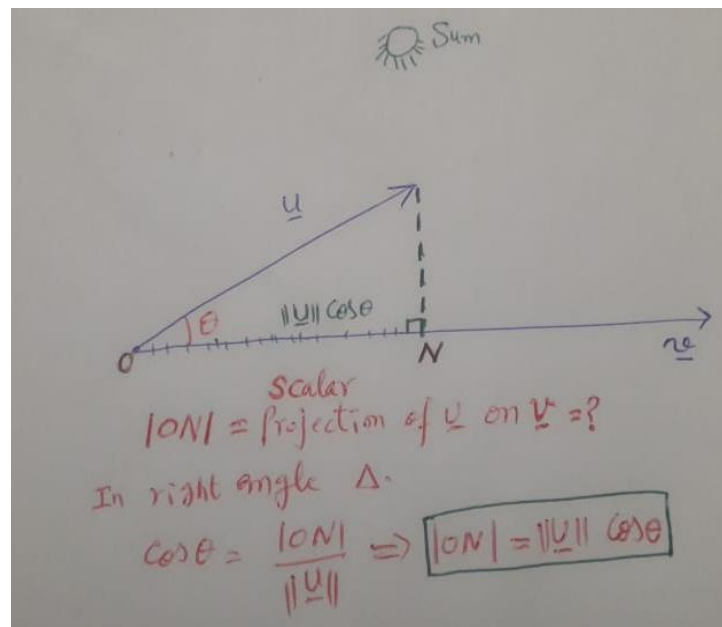 Sum
u
θ
||U|| Cosθ
O
N
v
Scalar
|ON| = Projection of u on v = ?
In right angle Δ.
Cosθ = |ON| / ||U|| => |ON| = ||U|| Cosθ